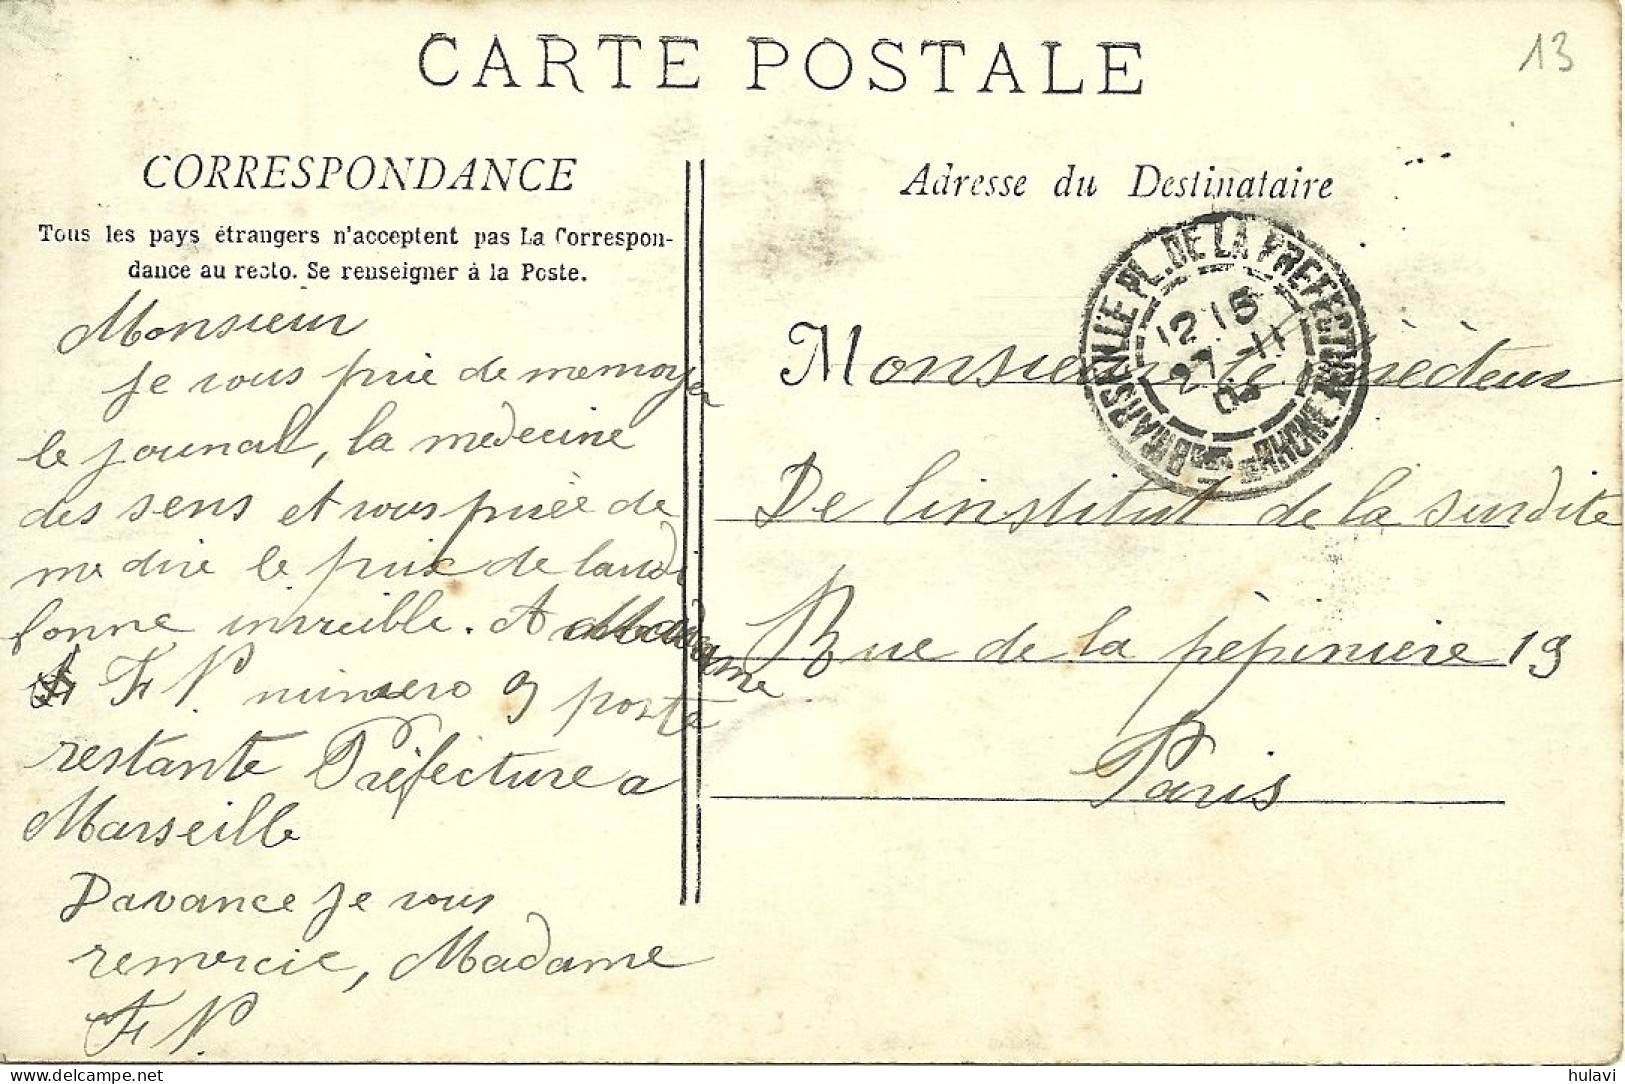 CARTE POSTALE
13
CORRESPONDANCE
Tous les pays étrangers n'acceptent pas La Correspon-
dance au recto. Se renseigner à la Poste.
Monsieur
Je vous prie de memoyer
le jounal, la medecine
des sens et vous priée de
me dire le prix de laudi
fonne invisible. A Madame
F. N. numero 9 poste
restante Préfecture a
Marseille
Davance Je vous
remercie, Madame
F. N.
Adresse du Destinataire
MARSEILLE PL. DE LA PREFECTURE
12 15
27 -11
BOUCHES DU RHONE
Monsieur le Directeur
De l'institut de la surdite
Rue de la pèpiniere 19
Paris
hulavi